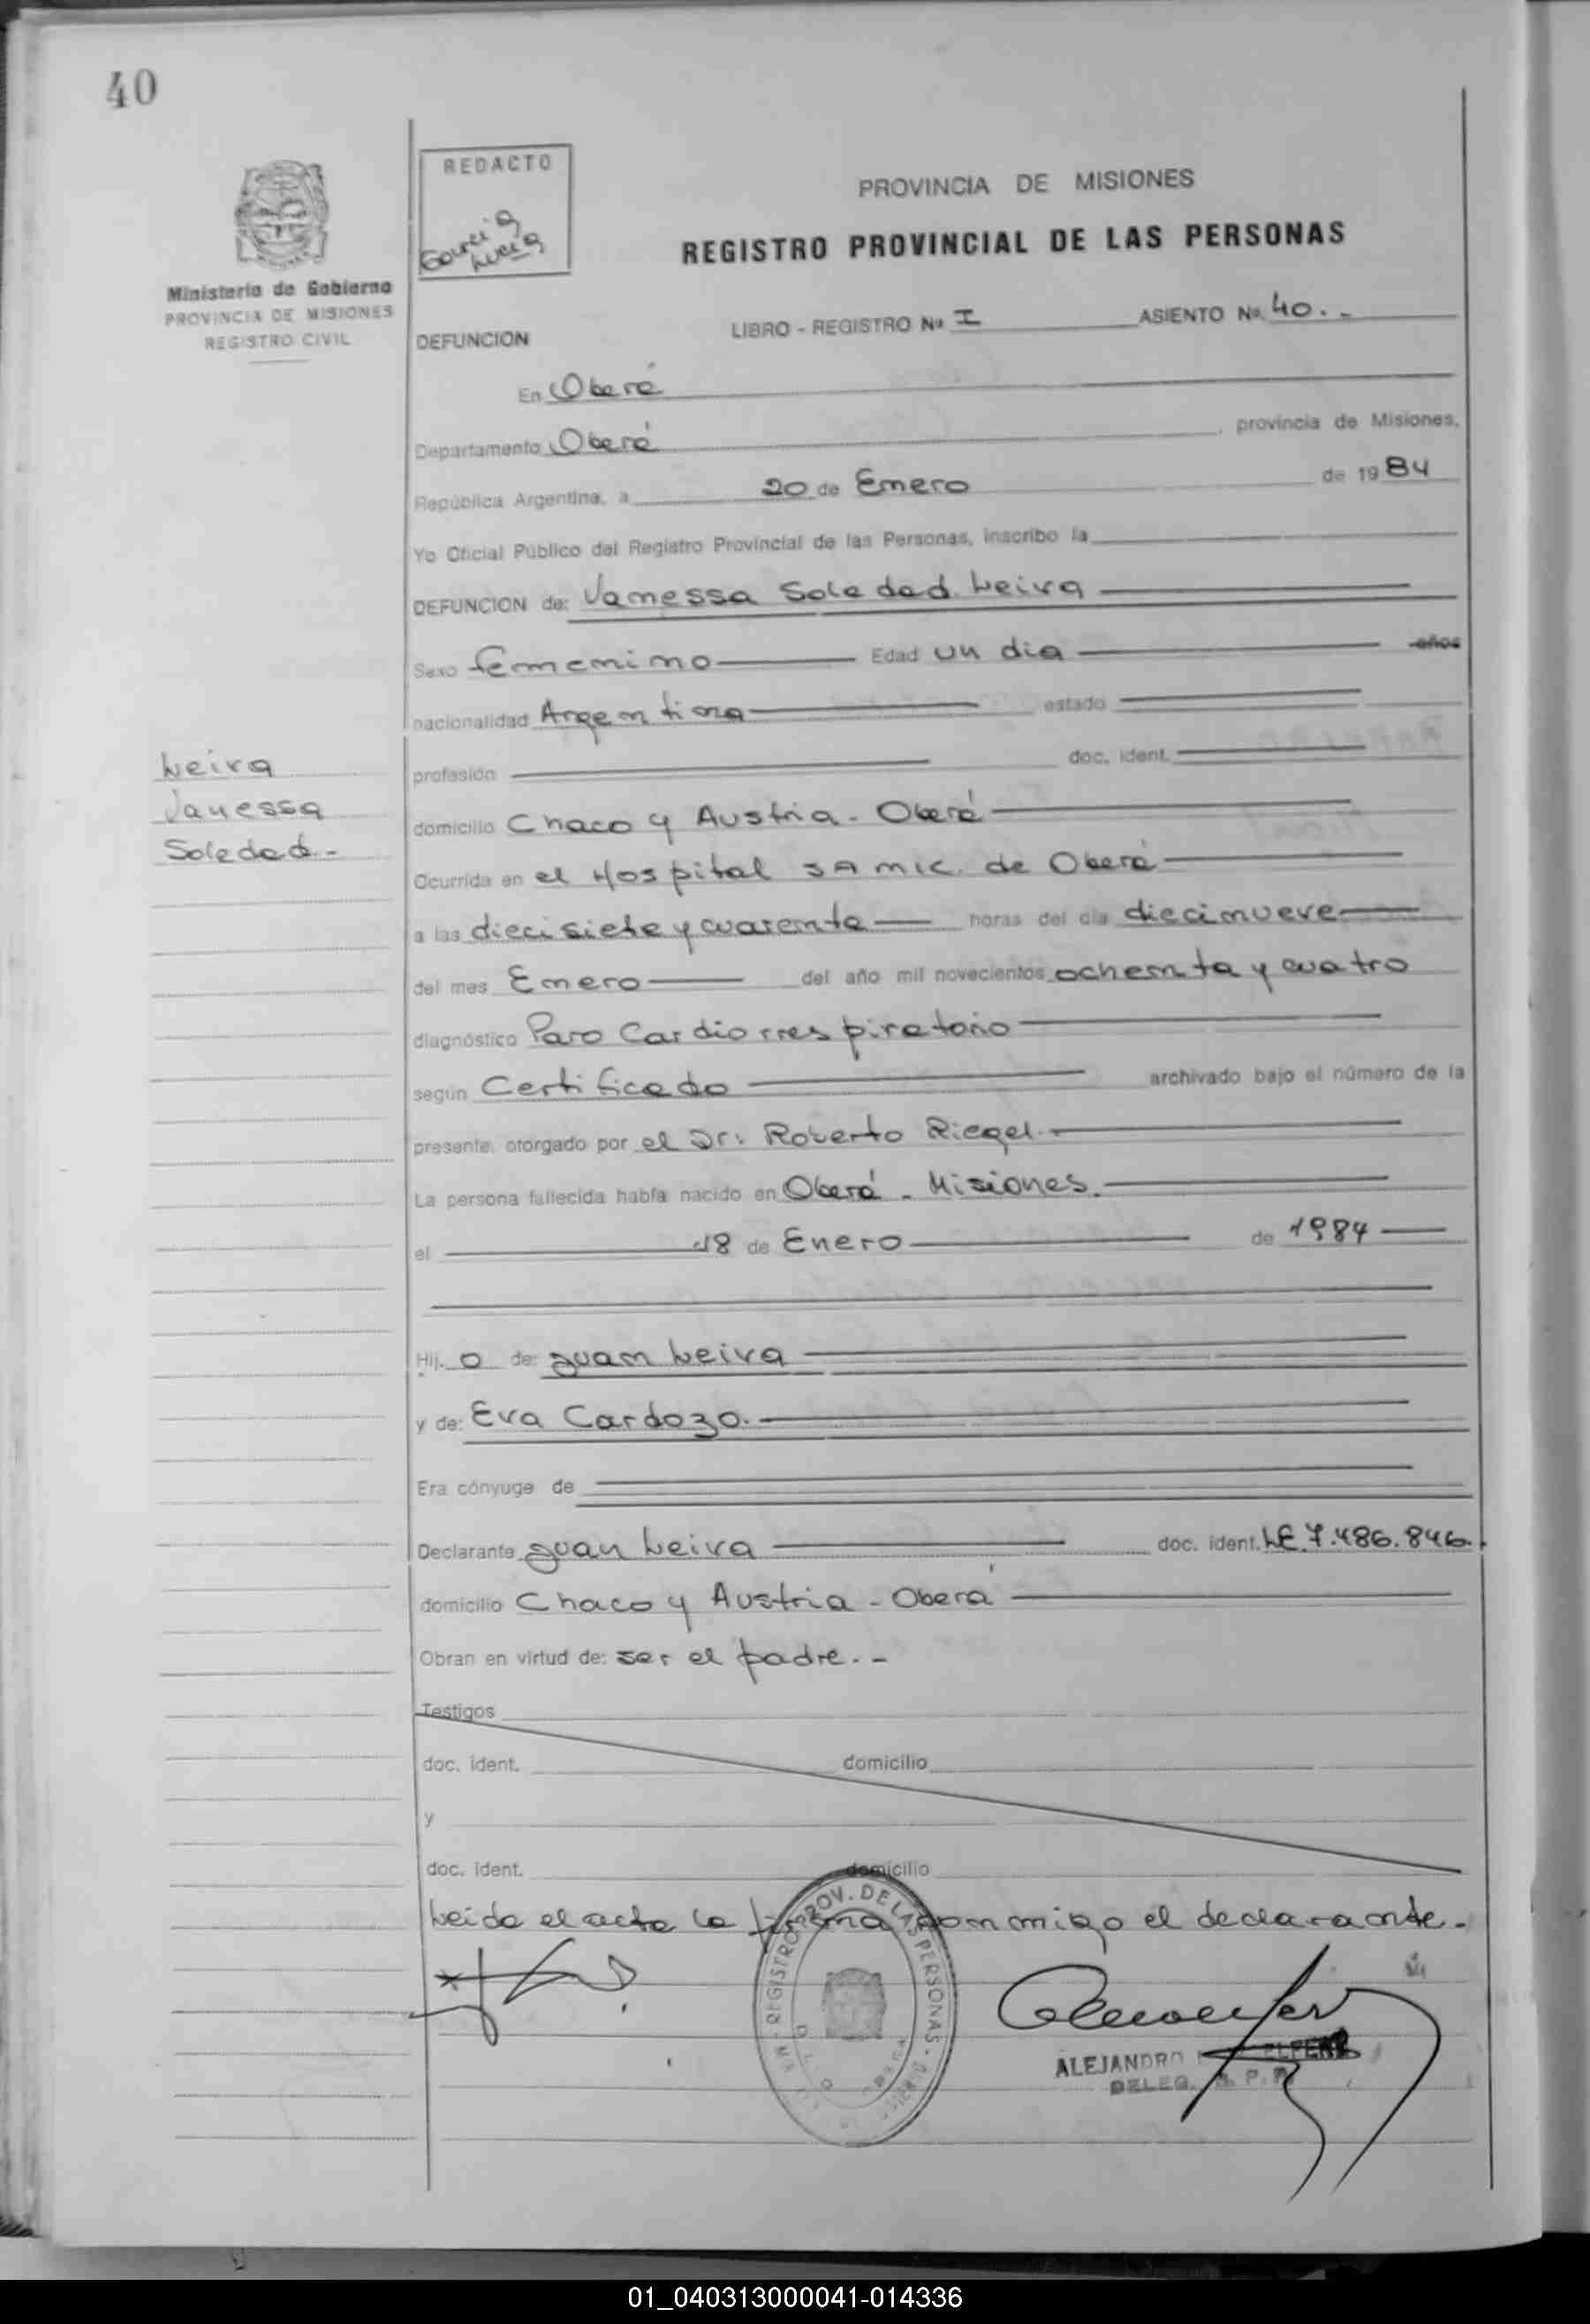 40
REDACTO
Garcia
Lucia
PROVINCIA DE MISIONES
REGISTRO PROVINCIAL DE LAS PERSONAS
Ministerio de Gobierno
PROVINCIA DE MISIONES
REGISTRO CIVIL
DEFUNCION LIBRO - REGISTRO Nº I ASIENTO Nº 40.-
En Oberá
Departamento Oberá, provincia de Misiones,
República Argentina, a 20 de Enero de 1984
Yo Oficial Público del Registro Provincial de las Personas, inscribo la
DEFUNCION de: Vanessa Soledad Leiva
Sexo femenino Edad un dia años
nacionalidad Argentina estado
Leiva
Vanessa
Soledad.-
profesión doc. ident.
domicilio Chaco y Austria - Oberá
Ocurrida en el Hospital SAMIC. de Oberá
a las diecisiete y cuarenta horas del día diecinueve
del mes Enero del año mil novecientos ochenta y cuatro
diagnóstico Paro Cardiorrespiratorio
según Certificado archivado bajo el número de la
presente, otorgado por el Dr: Roberto Riegel.
La persona fallecida había nacido en Oberá - Misiones.
el 18 de Enero de 1984
Hij. o de: Juan Leiva
y de: Eva Cardozo.
Era cónyuge de
Declarante Juan Leiva doc. ident. LE.7.486.846.
domicilio Chaco y Austria - Oberá
Obran en virtud de: ser el padre.-
Testigos
doc. ident. domicilio
y
doc. ident. domicilio
Leida el acta la firma conmigo el declarante.
REGISTRO PROV. DE LAS PERSONAS
ALEJANDRO
DELEG. R. P. P.
01_040313000041-014336